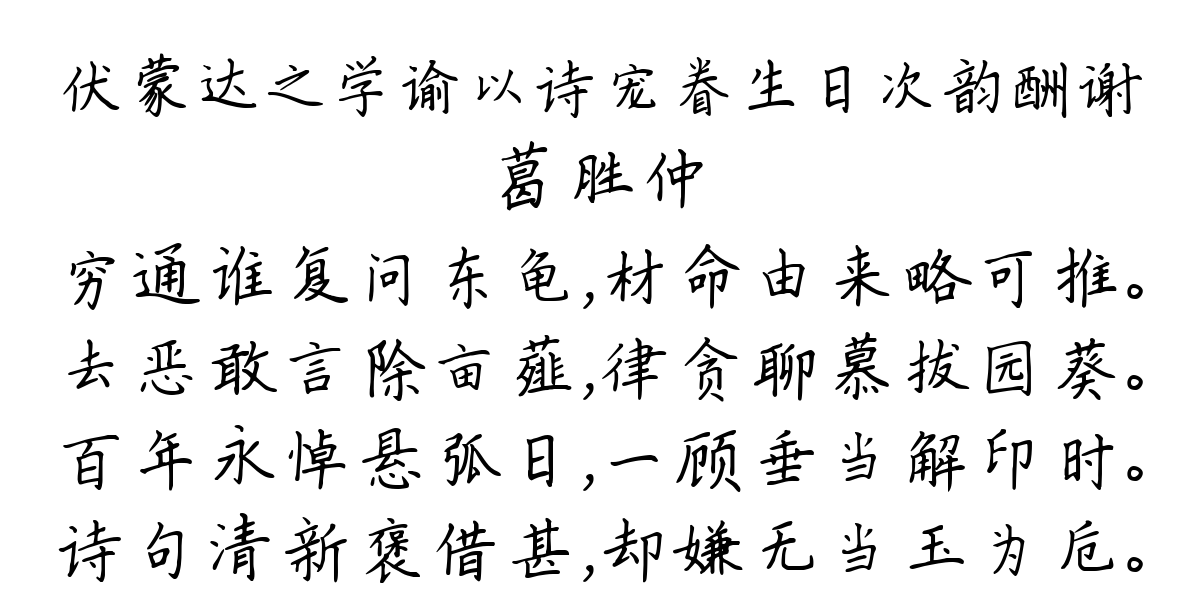 伏蒙达之学谕以诗宠眷生日次韵酬谢
葛胜仲
穷通谁复问东龟,材命由来略可推。
去恶敢言除亩薤,律贪聊慕拔园葵。
百年永悼悬弧日,一顾垂当解印时。
诗句清新褒借甚,却嫌无当玉为卮。